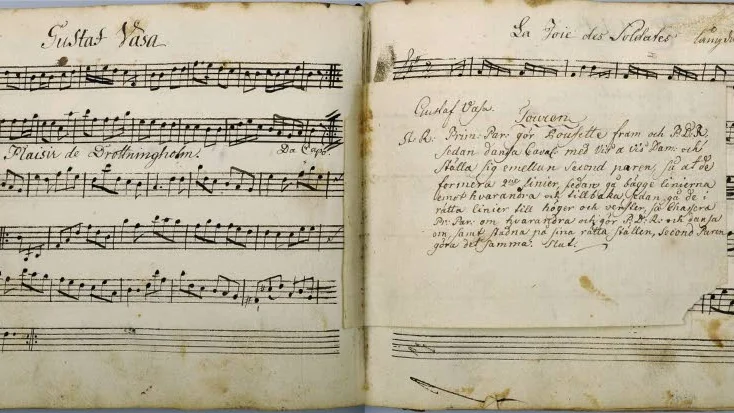 Gustaf Vasa
Da Capo.
Plaisir de Drottningholm.
La Joie des Soldates
Gustaf Vasa.
Touren
Prim: Par: gör Pousette fram och R.D.R.
Sedan dansa Cavalr. med Vis a Vis Dam: och
ställa sig emellan Second paren, så at de
formera 2ne linier, sedan gå bägge linierna
emot hvarandra och tillbaka, sedan gå de i
rätta linier till höger och venster, så Chasera
Pr: Par: om hvarandra och gör R.D.R. och dansa
om samt stadna på sina rätta ställen, Second Paren
göra det samma. Slut.